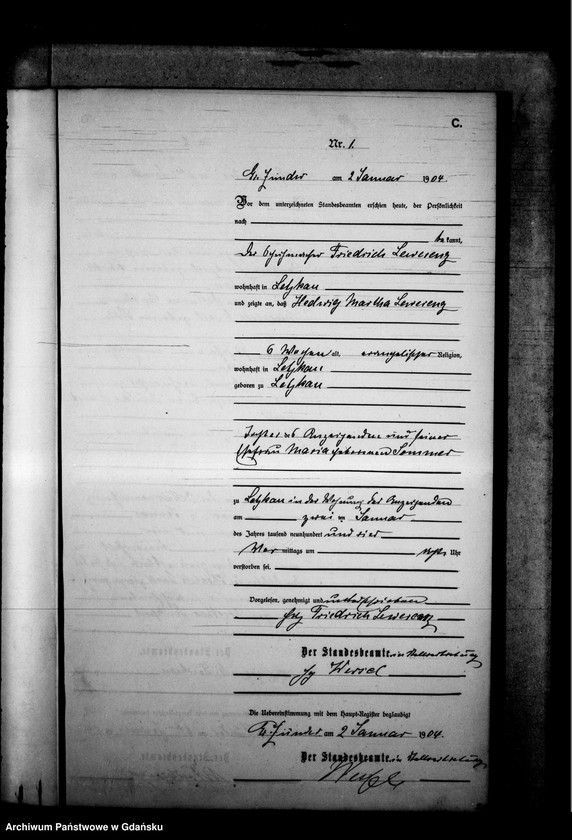 C.
Nr. 1.
Gr. Zünder am 2 Januar 1904.
Vor dem unterzeichneten Standesbeamten erschien heute, der Persönlichkeit
nach
bekannt,
der Schuhmacher Friedrich
wohnhaft in Letzkau
und zeigte an, daß Hedwig Martha
6 Wochen alt, evangelischer Religion,
wohnhaft in Letzkau
geboren zu Letzkau
Tochter des Anzeigenden und seiner
Ehefrau Maria geborenen Sommer
zu Letzkau in der Wohnung des Anzeigenden
am zwei ten Januar
des Jahres tausend neunhundert und vier
Vor mittags um Uhr
verstorben sei.
Vorgelesen, genehmigt und unterschrieben
gez Friedrich
Der Standesbeamte in Stellvertretung
gez
Die Uebereinstimmung mit dem Haupt-Register beglaubigt
Gr. Zünder am 2 Januar 1904.
Der Standesbeamte in Stellvertretung
Archiwum Państwowe w Gdańsku